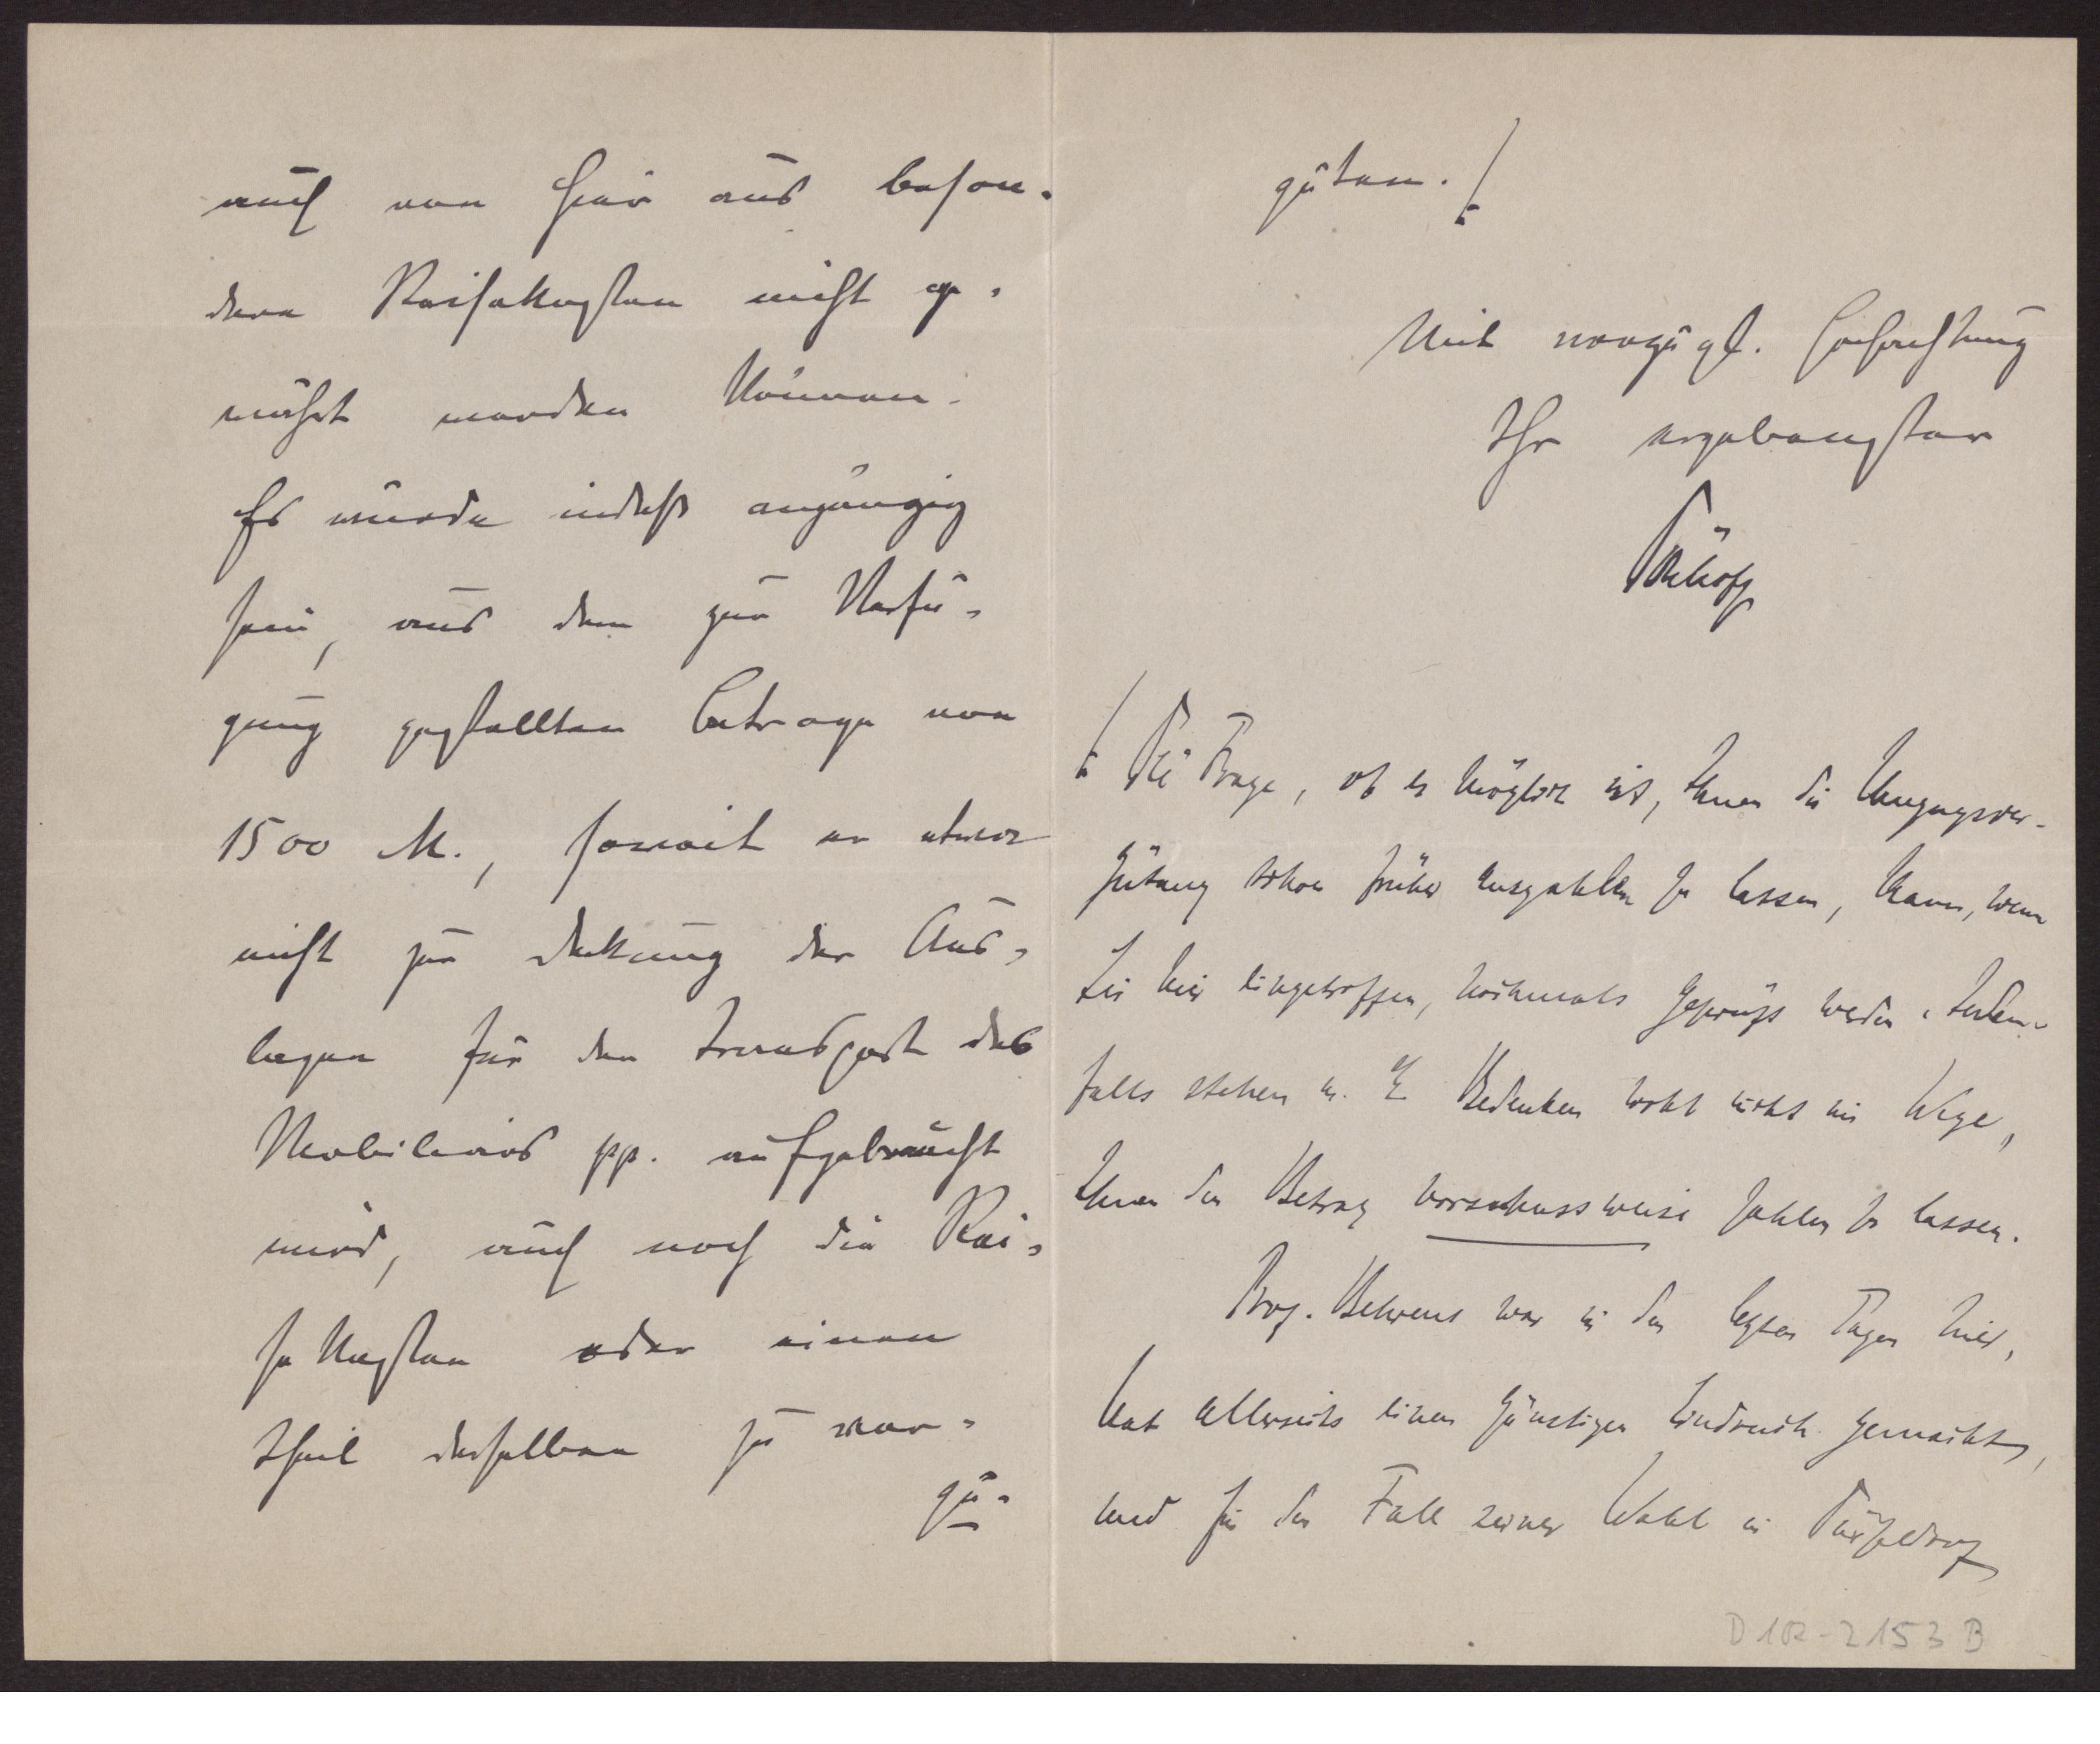 auch von hier aus beson-
dere Reisekosten nicht ge-
währt werden können.
Es würde indeß angängig
sein, aus dem zur Verfü-
gung gestellten Betrage von
1500 M., soweit er etwa
nicht zur Deckung der Aus-
lagen für den Transport des
Mobiliars pp. aufgebraucht
wird, auch noch die Rei-
sekosten oder einen
Theil derselben zu ver-
gü-
güten.
Mit vorzügl. Hochachtung
Ihr ergebenster
Die Frage, ob es möglich ist, Ihnen die Umzugsver-
gütung schon früher auszahlen zu lassen, kann, wenn
Sie hier eingetroffen, nochmals geprüft werden. Jeden-
falls stehen m. E. Bedenken wohl nicht im Wege,
Ihnen den Betrag vorschussweise zahlen zu lassen.
Prof. Behrens war in den letzten Tagen hier,
hat allerseits einen günstigen Eindruck gemacht,
und für den Fall seiner Wahl in Düsseldorf
D 102-2153 B